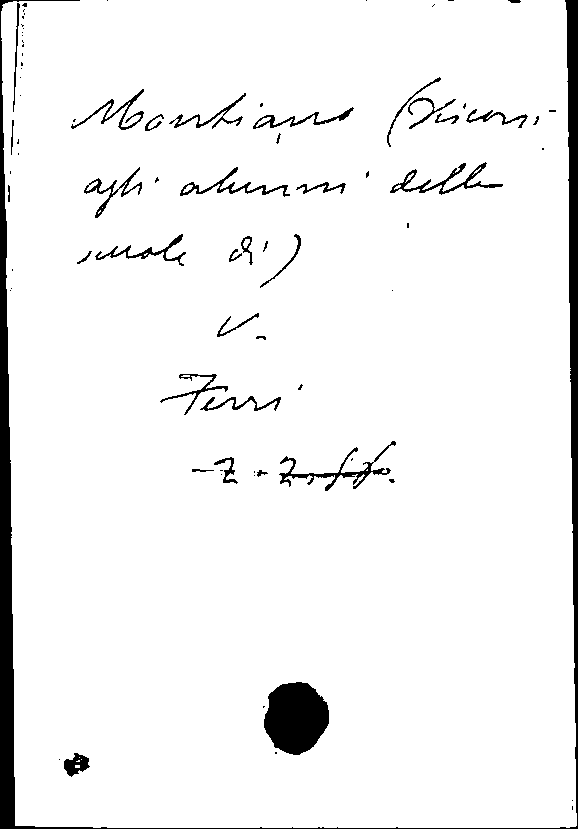 Montiano (Discorsi
agli alunni delle
scuole di)
V.
Ferri